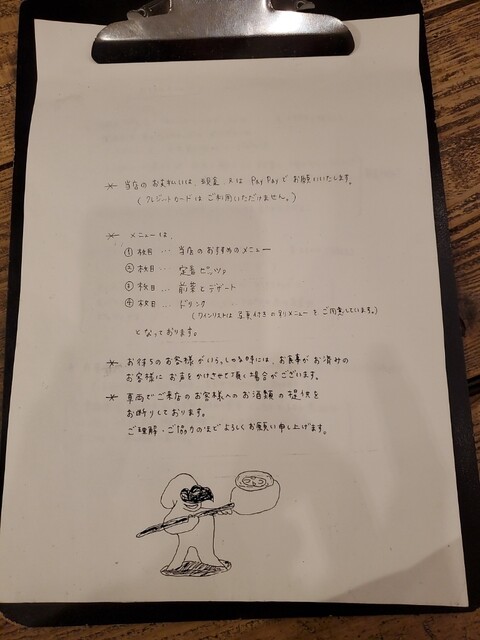 * 当店のお支払いは、現金 又は PayPayで お願いいたします。
(クレジットカードは ご利用いただけません。)
* メニューは、
① 枚目 … 当店のおすすめのメニュー
② 枚目 … 定番ピッツァ
③ 枚目 … 前菜とデザート
④ 枚目 … ドリンク
(ワインリストは 写真付きの別メニューをご用意しています。)
となっております。
* お待ちのお客様がいらっしゃる時には、お食事がお済みの
お客様に お声をかけさせて頂く場合がございます。
* 車両でご来店のお客様へのお酒類の提供を
お断りしております。
ご理解・ご協力のほど よろしくお願い申し上げます。